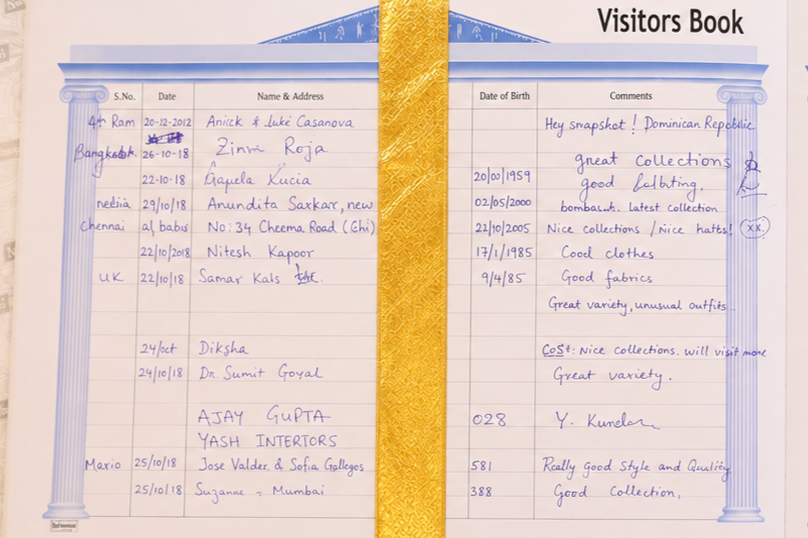 Visitors Book
S.No. Date Name & Address Date of Birth Comments
4th Ram 20-12-2012 Anick & Luke Casanova Hey snapshot! Dominican Republic
26-10-18 Zinni Roja great Collections
22-10-18 Gapela Kucia 20/00/1959 good
nedia 29/10/18 Anundita Sarkar, new 02/05/2000 latest collection
Chennai al, babis No: 34 Cheema Road (Chi) 22/10/2005 Nice collections / Nice hatts! (xx)
22/10/2018 Nitesh Kapoor 17/1/1985 Cood clothes
UK 22/10/18 Samar Kals 9/4/85 Good fabrics
Great variety, unusual outfits.
24/oct Diksha Cost: Nice collections. will visit more
24/10/18 Dr. Sumit Goyal Great variety.
AJAY GUPTA 028 Y.
YASH INTERTORS
Mario 25/10/18 Jose Valder & Sofia Gallegos 581 Really Good Style and Quality
25/10/18 Suzanne - Mumbai 388 Good Collection,